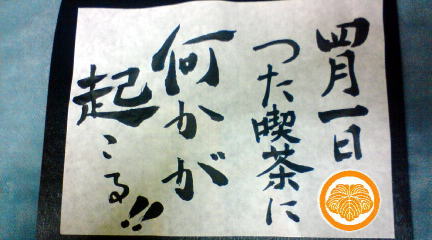 四月一日
つた喫茶に
何かが
起こる!!